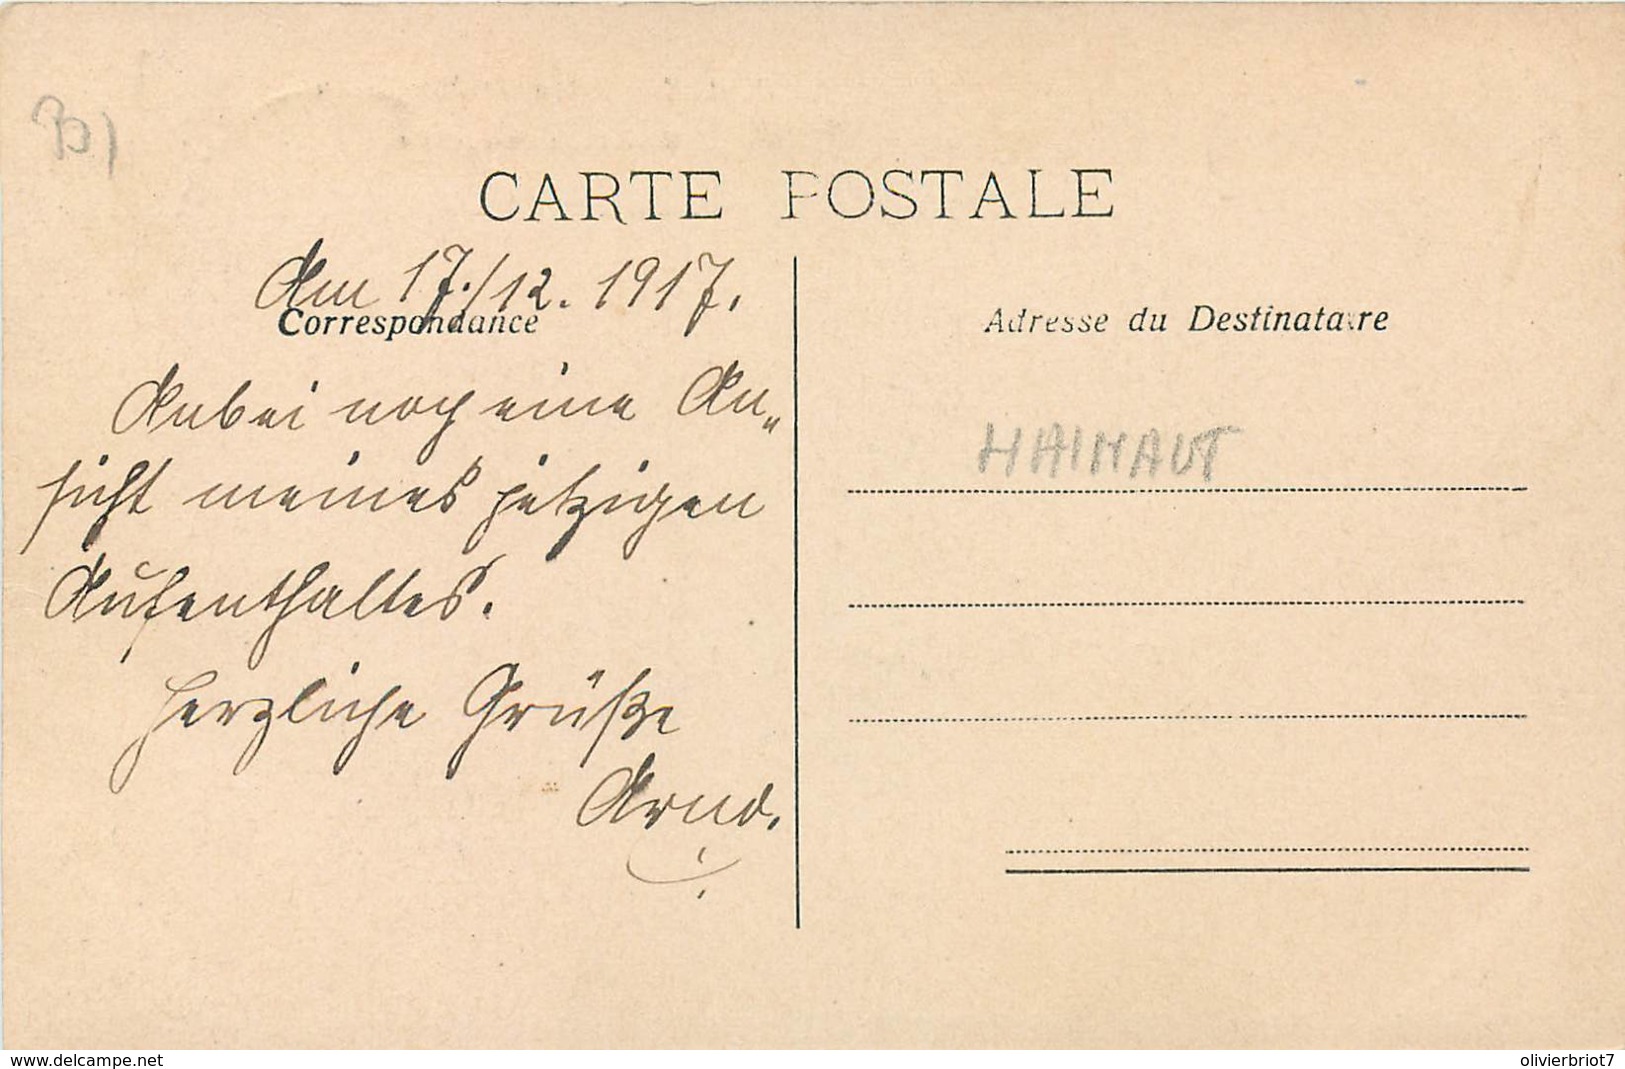 CARTE POSTALE
Am 17./12. 1917.
Correspondance
Anbei noch eine An„
sicht meines jetzigen
Aufenthaltes.
Herzliche Grüße
Arno.
Adresse du Destinataire
HAINAUT
www.delcampe.net
olivierbriot7